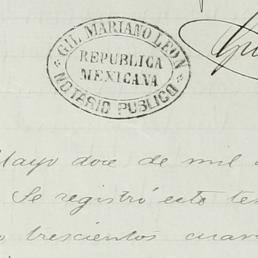 GIL MARIANO LEON
REPUBLICA
MEXICANA
NOTARIO PUBLICO
Mayo doce de mil
Se registró este
trescientos